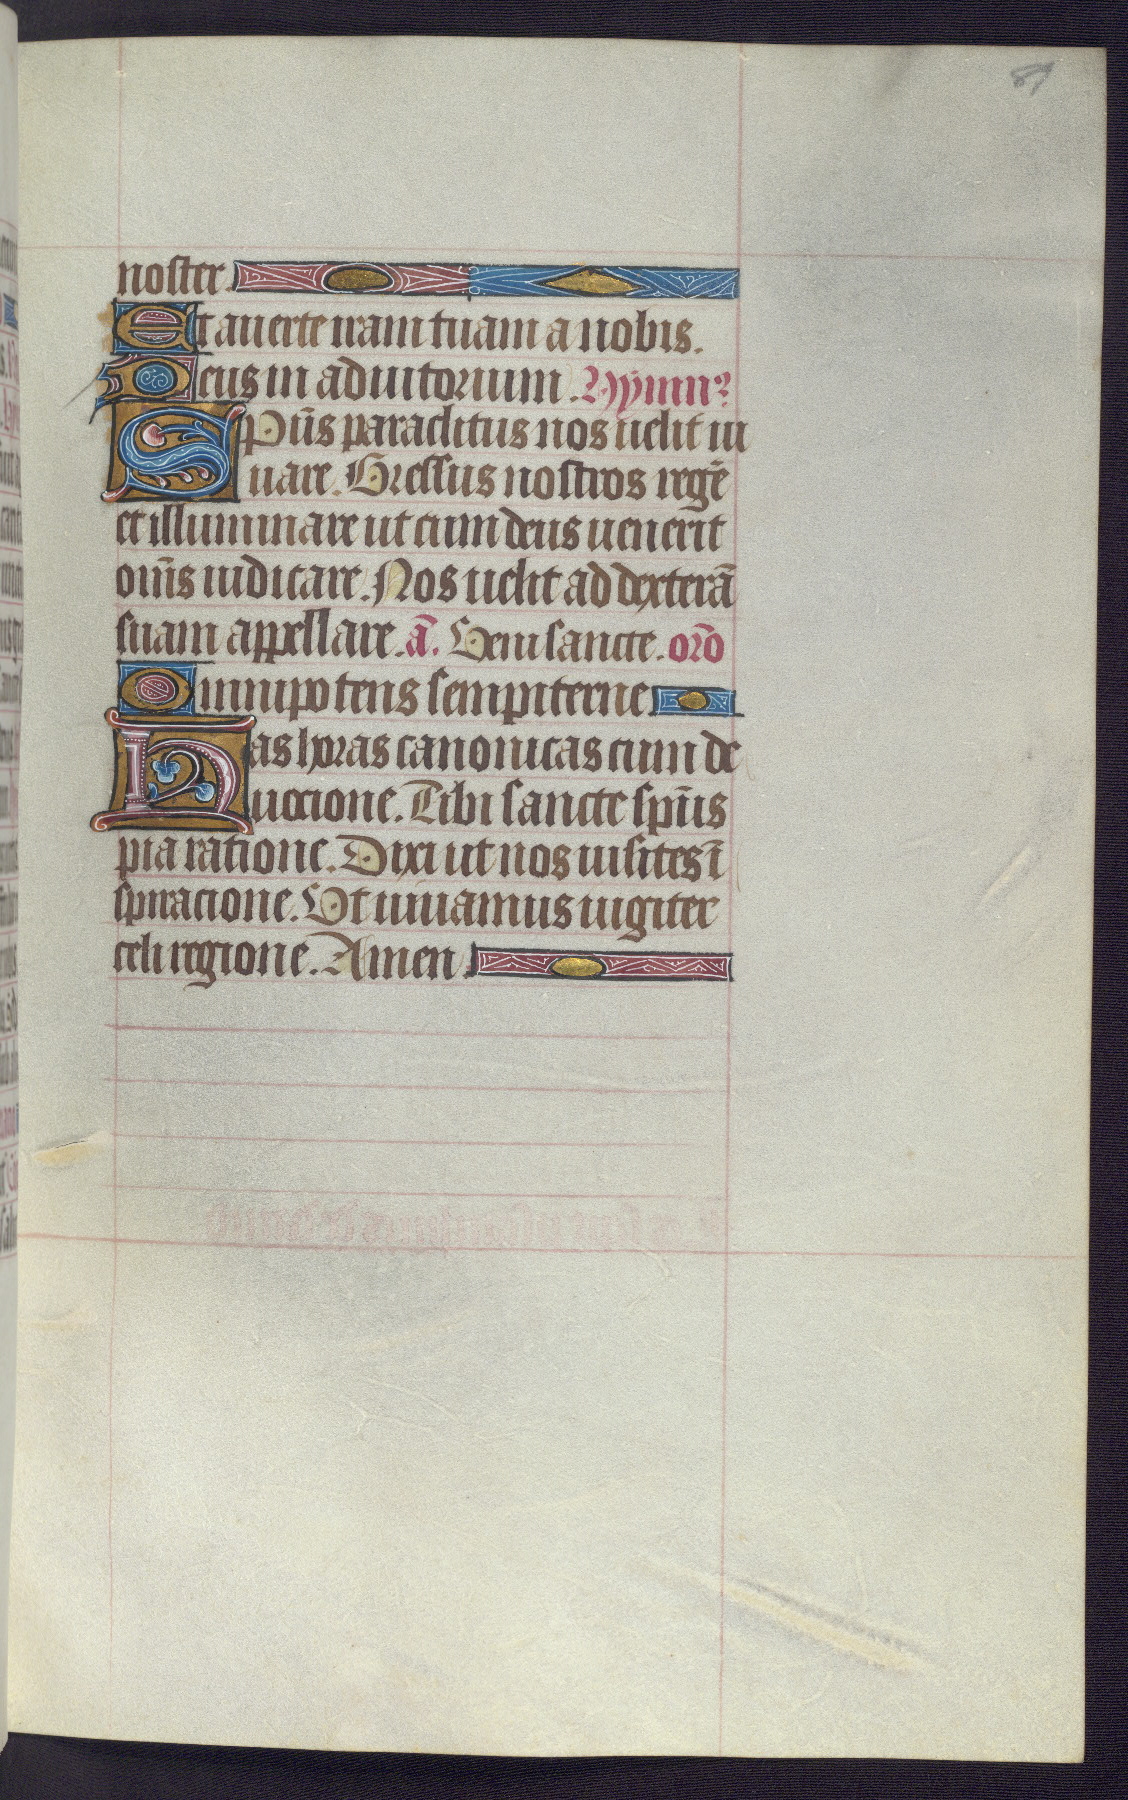 89
noster.
Et auerte iram tuam a nobis.
Deus in adiutorium. Hymn⁹
Spūs paraclitus nos uelit iu
uare. Gressus nostros regē
et illuminare ut cum deus uenerit
om̄s iudicare. Nos uelit ad dexterā
suam appellare. ā. Veni sancte. orō
Omnipotens sempiterne
Has horas canonicas cum de
uocione. Tibi sancte sp̄us
pia ratione. Dixi ut nos uisites ī
spiracione. Vt uiuamus iugiter
celi regione. Amen